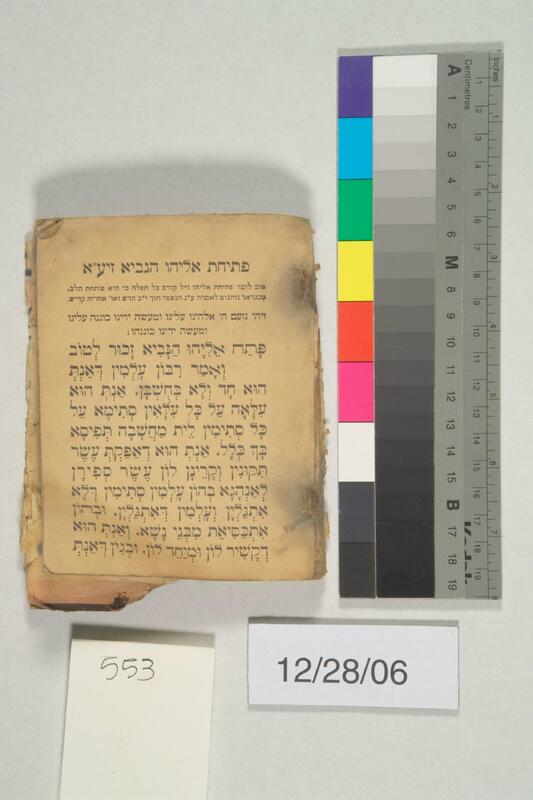 פתיחת אליהו הנביא זיע״א
טוב לומר פתיחת אליהו ז״ל קודם כל תפלה כי היא פותחת הלב.
ובבגדאד נוהגים לאמרה ע״נ הנפטר תוך י״ב חדש ואו׳ אחריה קדיש.
ויהי נועם ה׳ אלהינו עלינו ומעשה ידינו כוננה עלינו
ומעשה ידינו כוננהו:
פָּתַח אֵלִיָּהוּ הַנָּבִיא זָכוּר לְטוֹב
וְאָמַר רִבּוֹן עָלְמִין דְּאַנְתְּ
הוּא חָד וְלָא בְּחֻשְׁבָּן. אַנְתְּ הוּא
עִלָּאָה עַל כָּל עִלָּאִין סְתִימָא עַל
כָּל סְתִימִין לֵית מַחֲשָׁבָה תְּפִיסָא
בָךְ כְּלָל. אַנְתְּ הוּא דְאַפַּקְתְּ עֶשֶׂר
תִּקּוּנִין וְקָרֵינָן לוֹן עֶשֶׂר סְפִירָן
לְאַנְהָגָא בְהוֹן עָלְמִין סְתִימִין דְּלָא
אִתְגַּלְיָן וְעָלְמִין דְּאִתְגַּלְיָן. וּבְהוֹן
אִתְכַּסִּיאַת מִבְּנֵי נָשָׁא. וְאַנְתְּ הוּא
דְקָשִׁיר לוֹן וּמְיַחֵד לוֹן. וּבְגִין דְּאַנְתְּ
Inches
Centimetres
1 2 3 4 5 6 7 8
1 2 3 4 5 6 7 8 9 10 11 12 13 14 15 16 17 18 19
A 1 2 3 4 5 6 M 8 9 10 11 12 13 14 15 B 17 18 19
Kodak
553
12/28/06